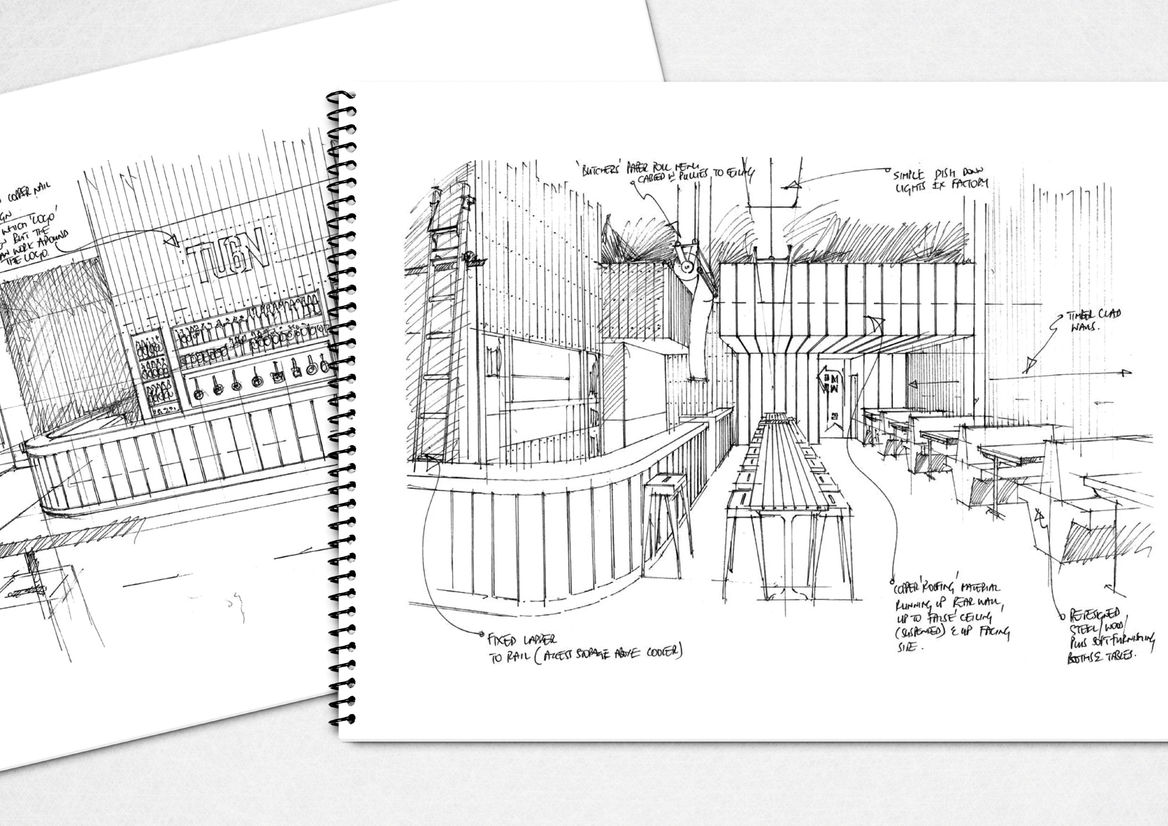 COPPER NAIL
WHICH 'LOGO'
BUT THE
WORK AROUND
THE LOGO.
TUGN
'BUTCHERS' PAPER ROLL MENU
CABLED & PULLIES TO CEILING
SIMPLE DISH DOWN
LIGHTS EX FACTORY
TIMBER CLAD
WALLS.
FIXED LADDER
TO RAIL (ACCESS STORAGE ABOVE COOLER)
COPPER 'ROOFING' MATERIAL
RUNNING UP REAR WALL,
UP TO 'FALSE' CEILING
(SUSPENDED) & UP FACING
SIDE.
REDESIGNED
STEEL/WOOD/
PLUS SOFT-FURNISHING
BOOTHS & TABLES.